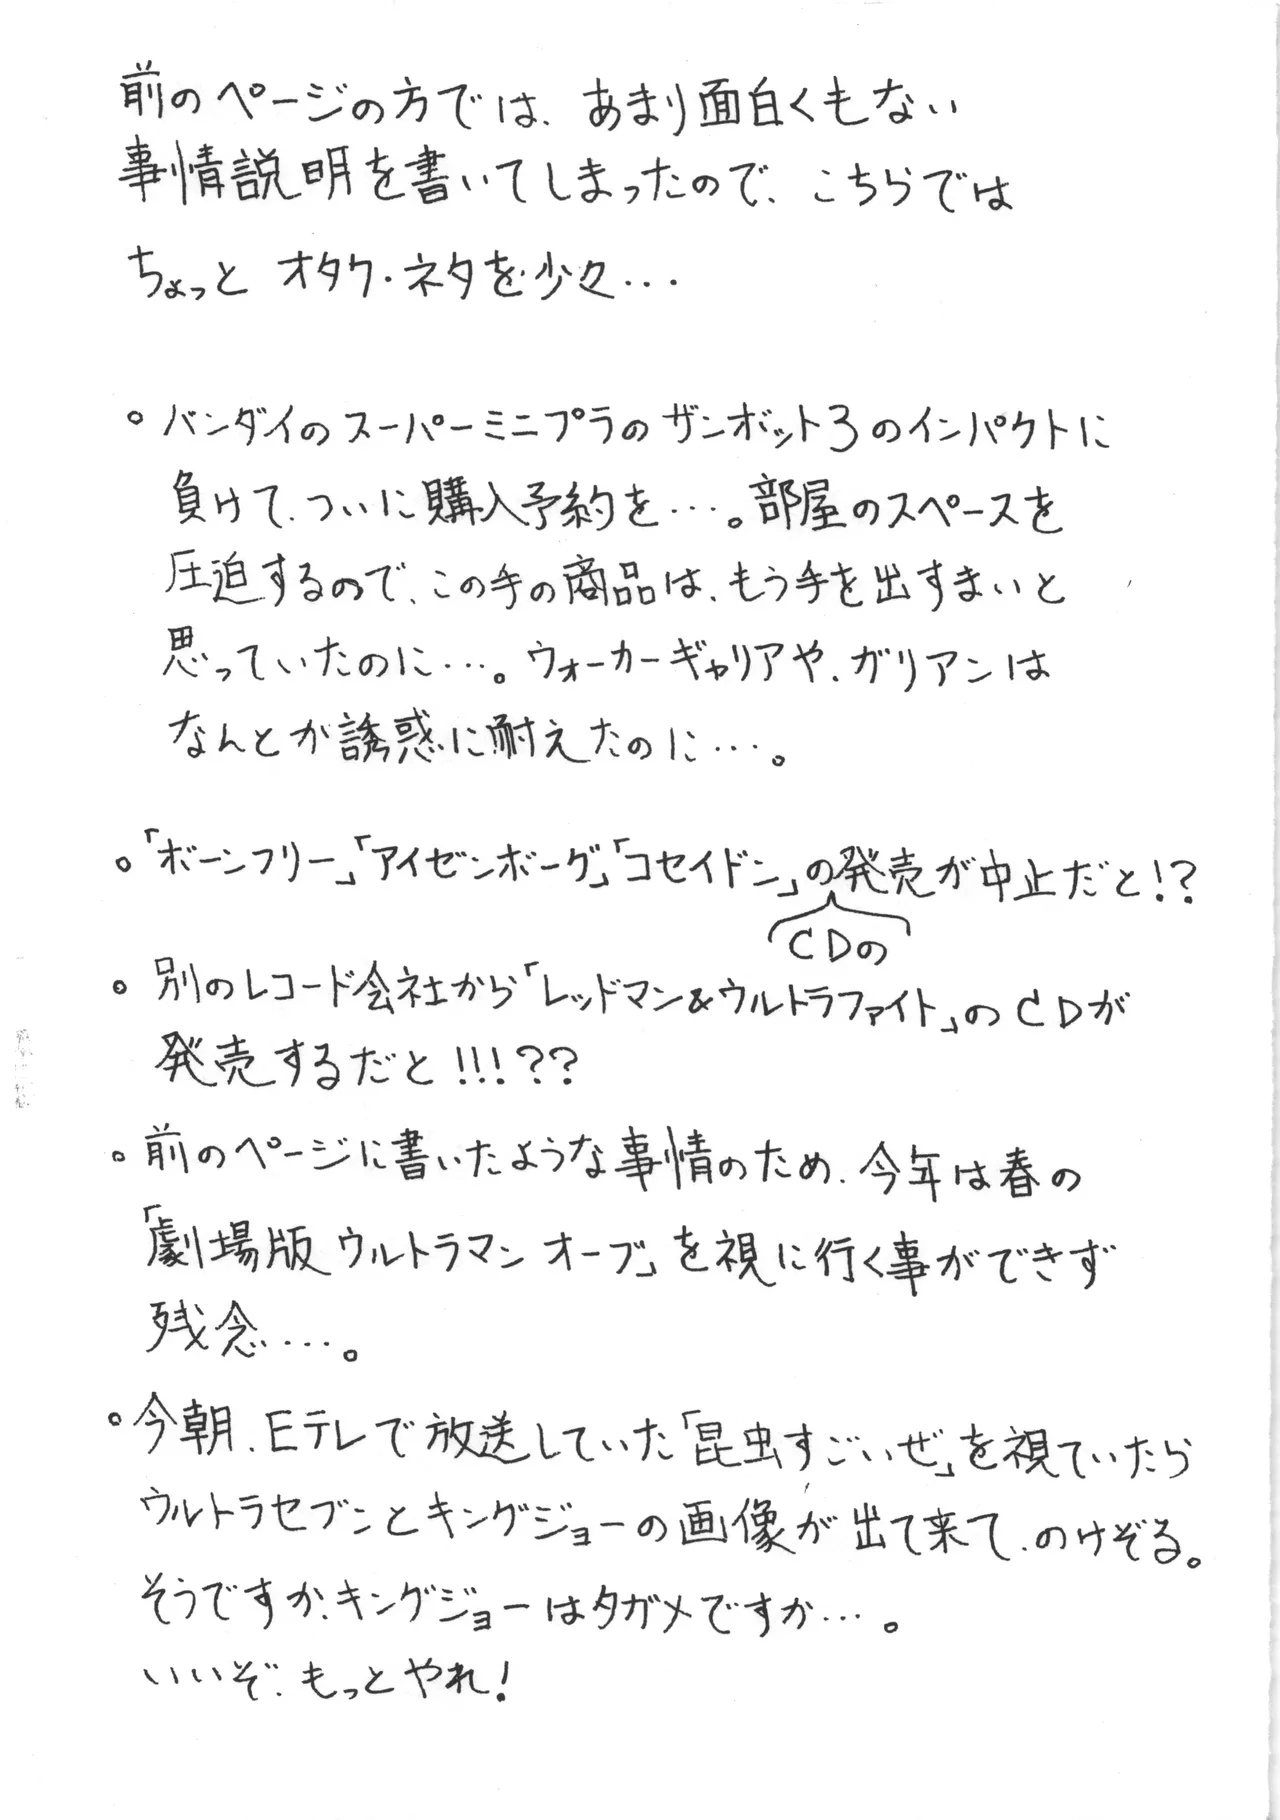 前のページの方では、あまり面白くもない
事情説明を書いてしまったので、こちらでは
ちょっと オタク・ネタを少々…
。バンダイのスーパーミニプラのザンボット3のインパクトに
負けて、ついに購入予約を…。部屋のスペースを
圧迫するので、この手の商品は、もう手を出すまいと
思っていたのに…。ウォーカーギャリアや、ガリアンは
なんとか誘惑に耐えたのに…。
。「ボーンフリー」「アイゼンボーグ」「コセイドン」の発売が中止だと!?
CDの
。別のレコード会社から「レッドマン&ウルトラファイト」のCDが
発売するだと!!!??
。前のページに書いたような事情のため、今年は春の
「劇場版 ウルトラマン オーブ」を視に行く事ができず
残念…。
。今朝、Eテレで放送していた「昆虫すごいぜ」を視ていたら
ウルトラセブンとキングジョーの画像が出て来て、のけぞる。
そうですか、キングジョーはタガメですか…。
いいぞ、もっとやれ!